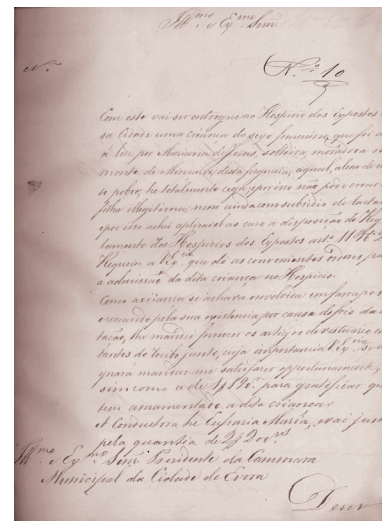 Ill.mo e Ex.mo Senr
N.º
N.º 10
Com este vai ser entregue no Hospicio dos Expostos
sa Cidade uma criança do sexo feminino, que foi
á luz por Marianna de Jesus, solteira, moradora
monte do desta freguezia, a qual, alem de
pobre, he totalmente cega, e por isso não pode crear
filha illegitima, nem ainda com subsidio de
por isso achei applicavel ao caso a disposição do
lamento dos Hospicios dos Expostos art.º 11
Requeiro a V. Ex.cia que dê as convenientes ordens
a admissão da dita criança no Hospicio.
Como a criança se achava envolvida em farapos
receando pela sua existencia por causa do frio da
tação, lhe mandei fornecer os artigos de vestuario
tantes do junto, cuja importancia V. Ex.cia se
gnará mandar-me satisfazer opportunamente,
sim como a de para gratificar
tem amamentado a dita criança.
A Conductora he Eufrazia Maria, e vai
pela quantia de
Ill.mo e Ex.mo Senr. Presidente da Cammara
Municipal da Cidade de Evora
Deus